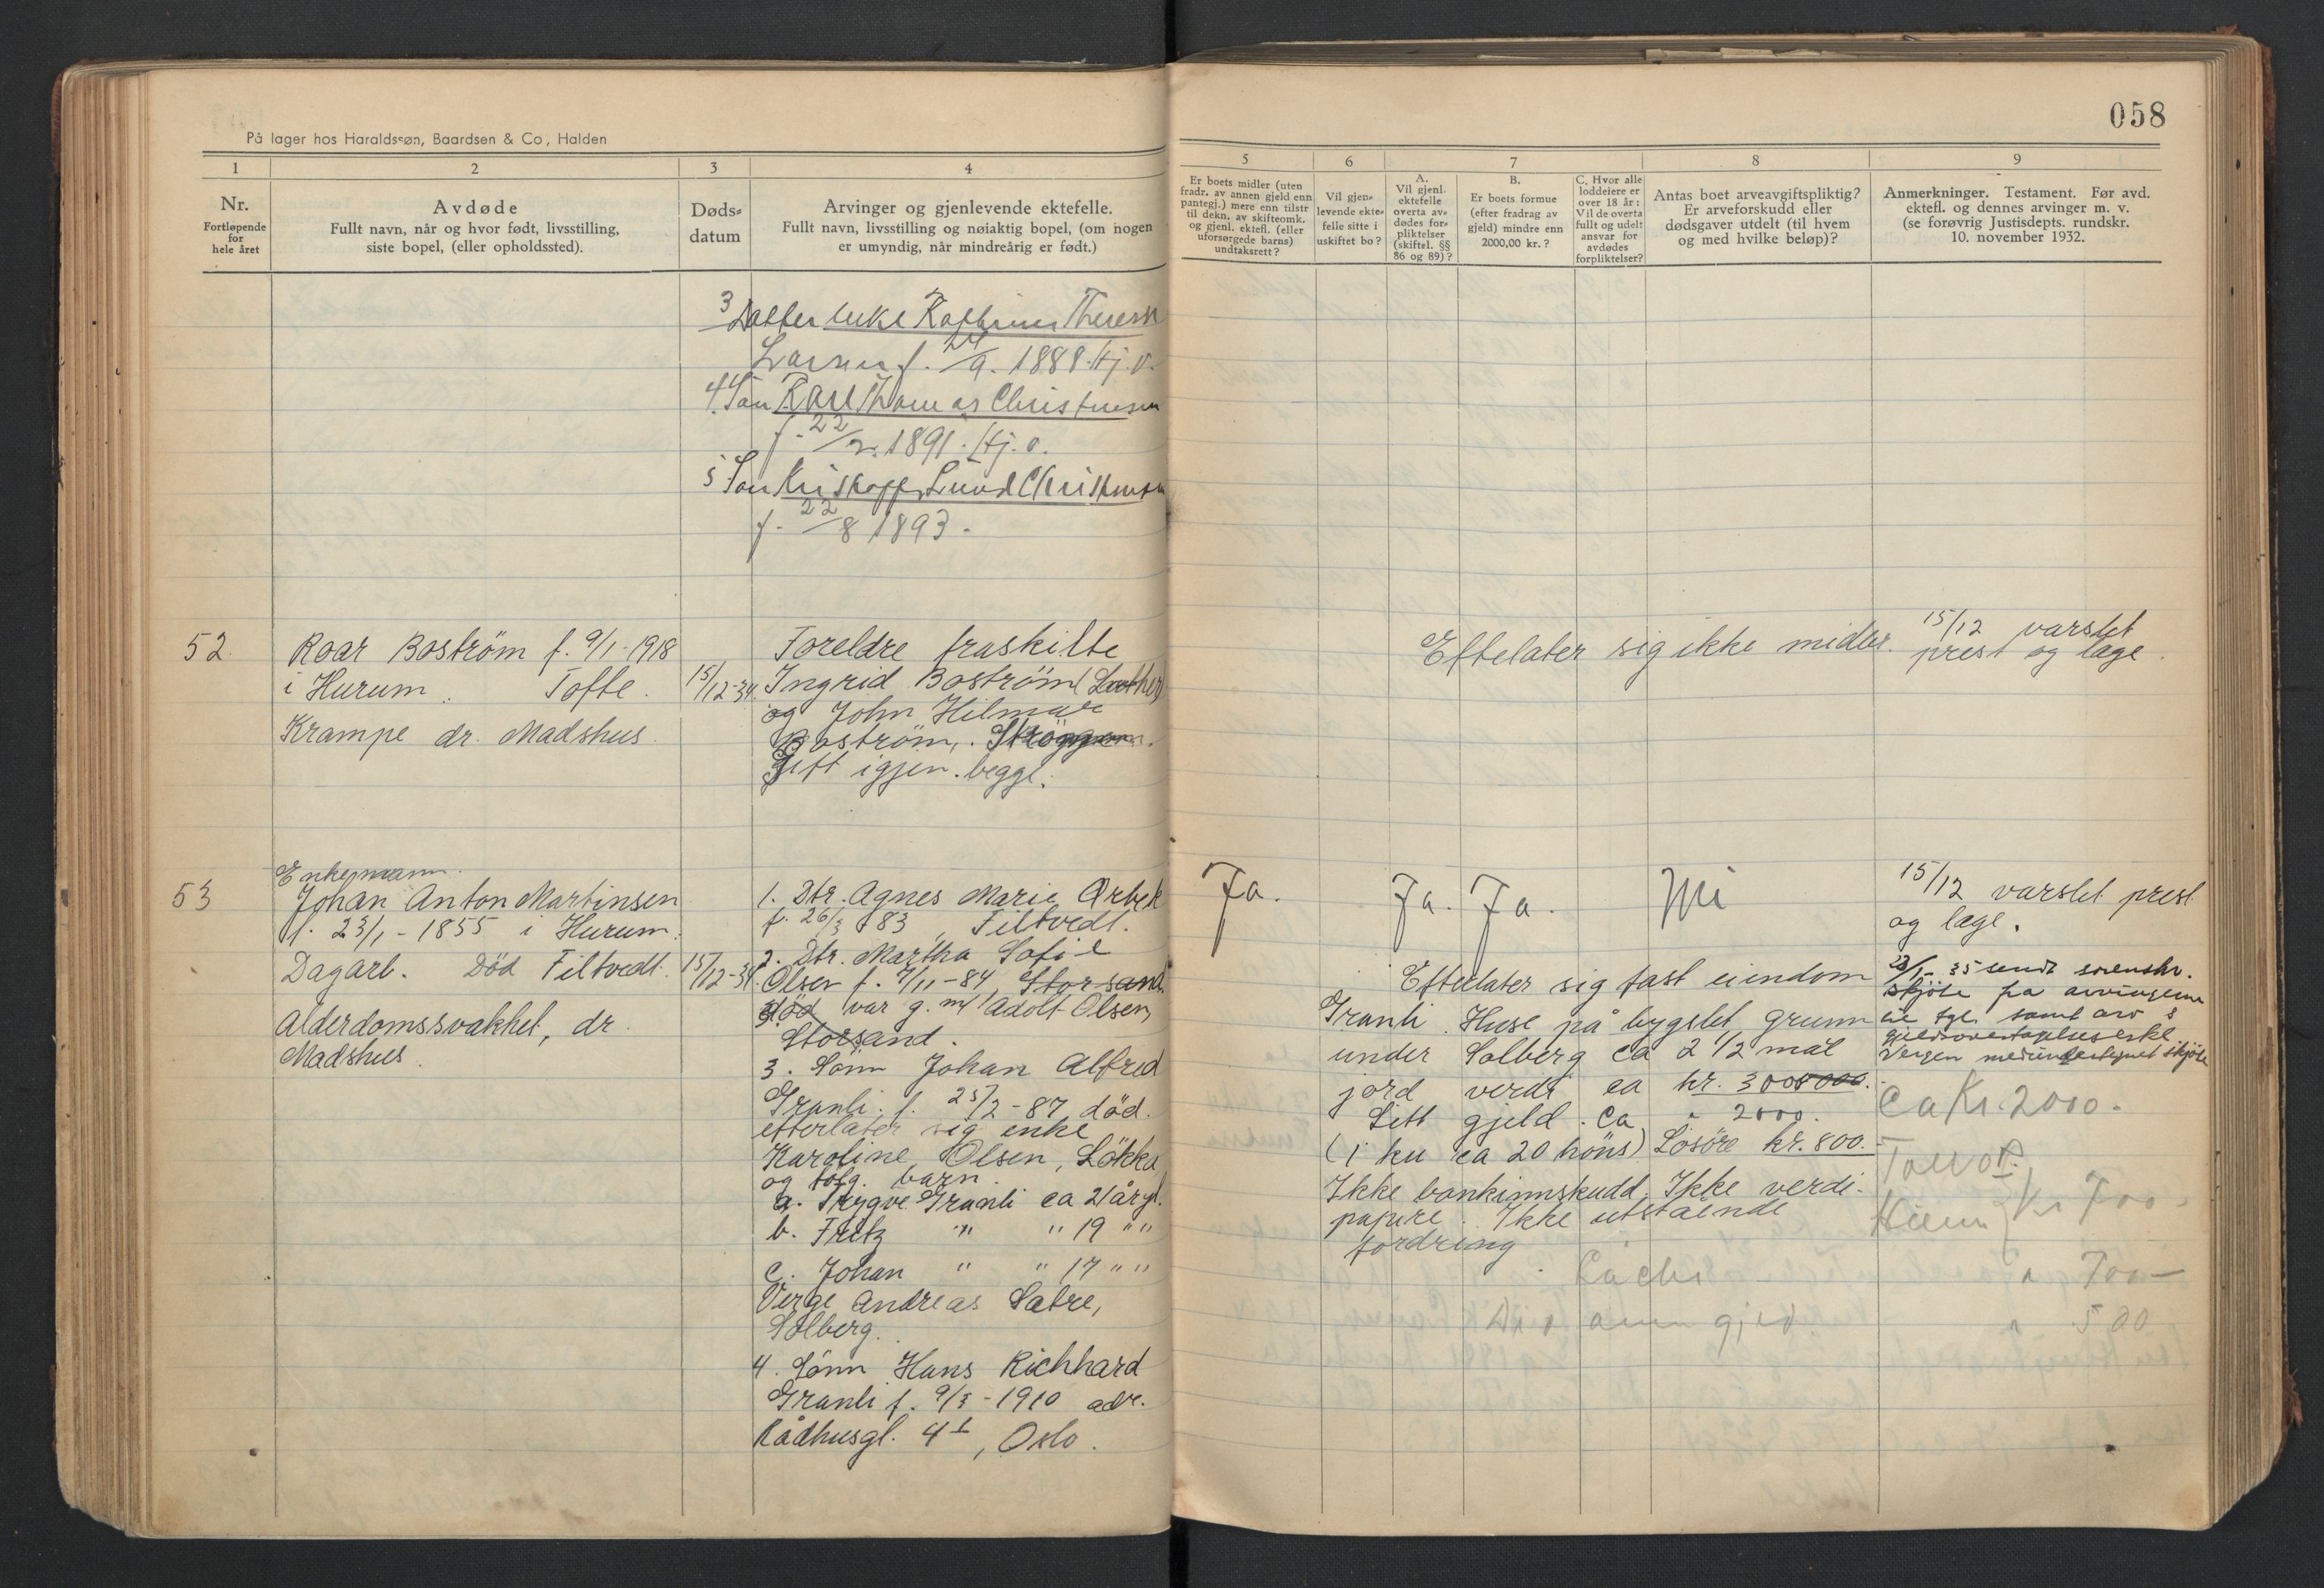 058
På lager hos Haraldssøn, Baardsen & Co, Halden
1
2
3
4
Nr.
Fortløpende
for
hele året
Avdøde
Fullt navn, når og hvor født, livsstilling,
siste bopel, (eller opholdssted).
Døds-
datum
Arvinger og gjenlevende ektefelle.
Fullt navn, livsstilling og nøiaktig bopel, (om nogen
er umyndig, når mindreårig er født.)
5
6
7
8
9
Er boets midler (uten
fradr. av annen gjeld enn
pantegj.) mere enn tilstr
til dekn. av skifteomk.
og gjenl. ektefl. (eller
uforsørgede barns)
undtaksrett?
Vil gjen-
levende ekte-
felle sitte i
uskiftet bo?
A.
Vil gjenl.
ektefelle
overta av-
dødes for-
pliktelser
(skiftel. §§
86 og 89)?
B.
Er boets formue
(efter fradrag av
gjeld) mindre enn
2000,00 kr.?
C. Hvor alle
loddeiere er
over 18 år:
Vil de overta
fullt og udelt
ansvar for
avdødes
forpliktelser?
Antas boet arveavgiftspliktig?
Er arveforskudd eller
dødsgaver utdelt (til hvem
og med hvilke beløp)?
Anmerkninger. Testament. Før avd.
ektefl. og dennes arvinger m. v.
(se forøvrig Justisdepts. rundskr.
10. november 1932.
3 Datter enke Theresn
Larsen f. 24/9. 1888. Hj. o.
4 Søn Karl Thomas Christensen
f. 22/2. 1891. Hj. o.
5 Søn Kristoffer Lund Christensen
f. 22/8 1893.
52.
Roar Boström f. 9/1-1918
i Hurum. Tofte.
Krampe dr. Madshus.
15/12-34.
Foreldre fraskilte
Ingrid Boström
og John Hilmar
Boström,
Gift igjen. begge.
Eftelater sig ikke midler.
15/12 varslet
prest og læge.
53
Enkemann.
Johan Anton Martinsen
f. 23/1-1855 i Hurum.
Dagarb. Död Filtvedt.
Alderdomssvakhet, dr.
Madshus.
15/12-34.
1. Dtr. Agnes Marie Orbek
f. 26/3 83, Filtvedt.
2. Dtr. Martha Sofie
Olsen f. 7/11-84, Storsand
död var g. m/ Adolf Olsen,
Storsand.
3. Sönn Johan Alfred
Granli. f. 25/2-87, död.
etterlater sig enke
Karoline Olsen, Lökka
og følg. barn.
a. Trygve Granli ca 21 årgl.
b. Fritz " " 19 " "
c. Johan " " 17 " "
Verge Andreas Sætre,
Solberg.
4. Sönn Hans Richhard
Granli f. 9/3-1910 adr.
Rådhusgt. 4 , Oslo.
Ja.
Ja. Ja.
Nei
15/12 varslet prest
og læge.
Eftelater sig fast eiendom
Granli. Huse på bygslet grunn
under Solberg ca 2 1/2 mål
jord verdi ca kr.
Litt gjeld. Ca " 2000.
(1 ku ca 20 höns) Lösöre kr. 800.-
Ikke bankinnskudd, Ikke verdi-
papire. Ikke utstående
fordring.
23/1-35 sendt sorenskr.
skjöte fra arvingerne
samt arv &
gjeldsovertagelseserkl.
Vergen medundertegnet skjöte
Ca Kr. 2000.-
Kr 700-
" 700-
" 500